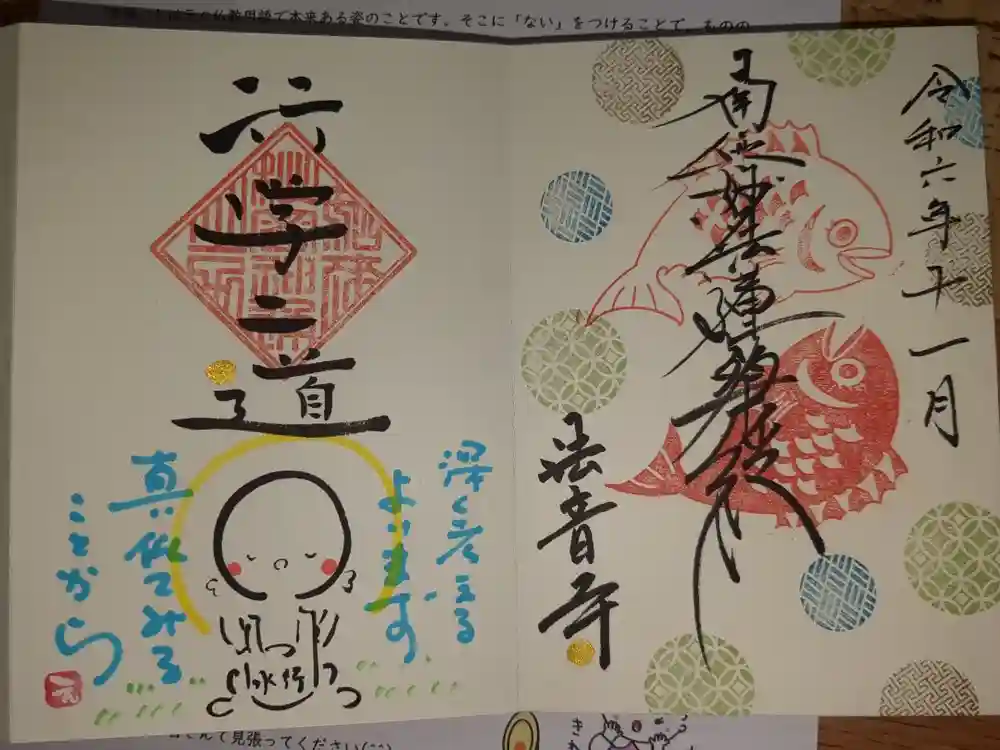 は元々仏教用語で本来ある姿のことです。そこに「ない」をつけることで、ものの
令和六年十一月
南無妙法蓮華経
法音寺
行学二道
深く考える
よりまず
真似てみる
ことから
水行
んで見張ってください(^^)